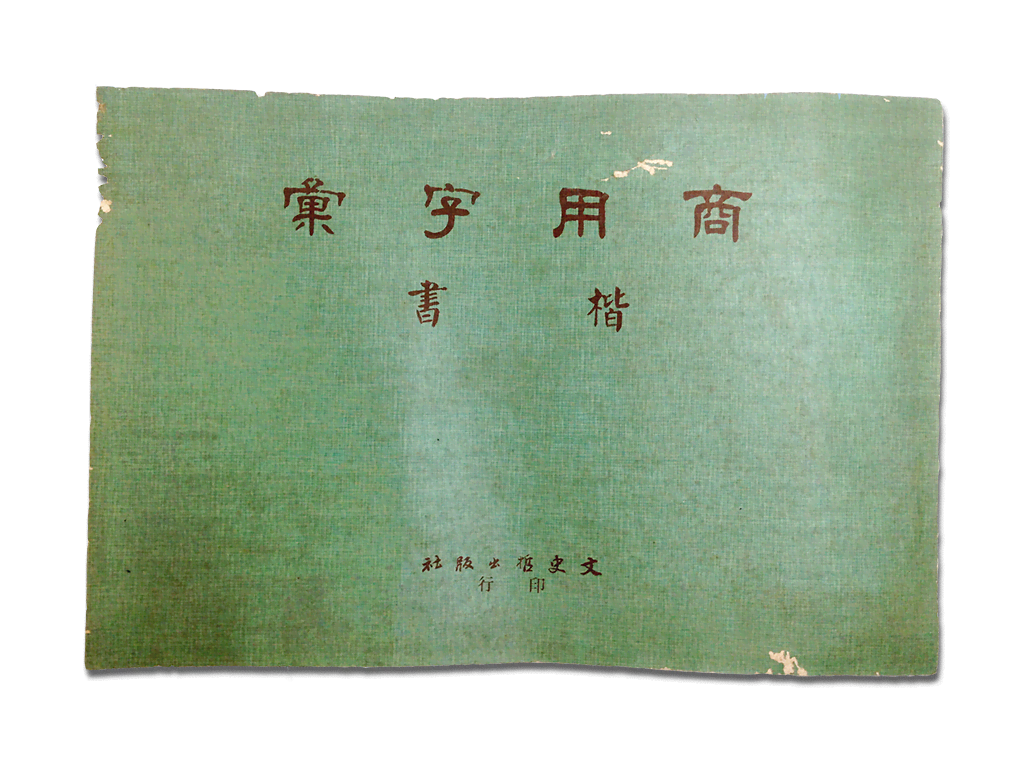 商用字彙
楷書
文史哲出版社
印行